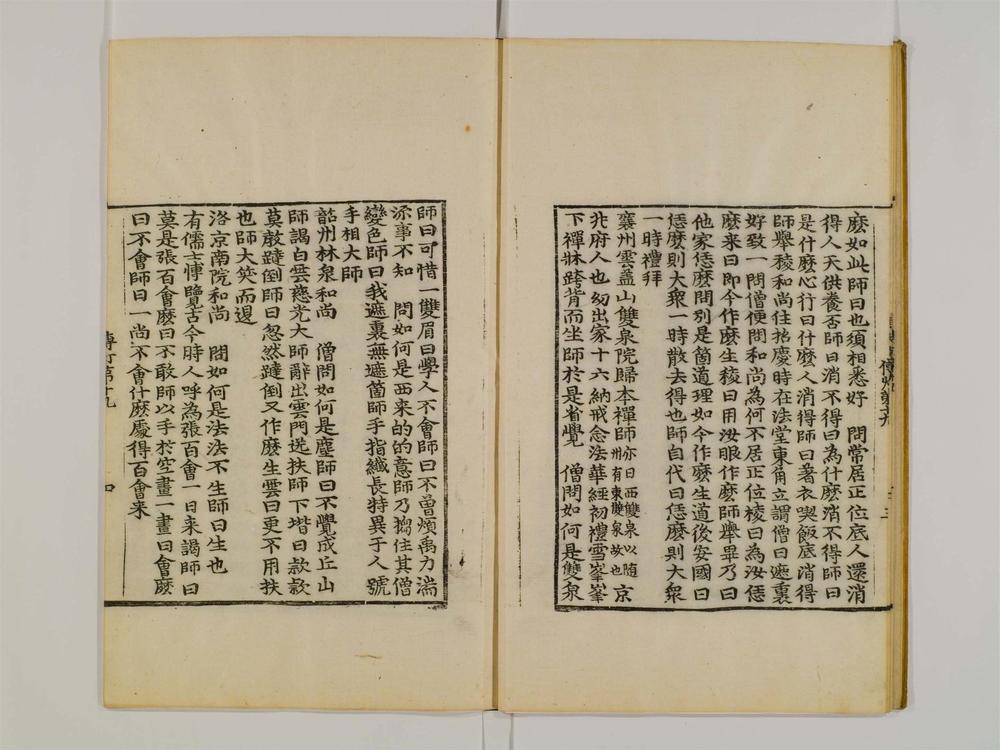 麽如此師曰也須相悉好　問常居正位底人還消
得人天供養否師曰消不得曰為什麽消不得師曰
是什麽心行曰什麽人消得師曰著衣喫飯底消得
師舉稜和尚住招慶時在法堂東角立謂僧曰遮裏
好致一問僧便問和尚為何不居正位稜曰為汝恁
麽來曰即今作麽生稜曰用汝眼作麽師舉畢乃曰
他家恁麽問別是箇道理如今作麽生道後安國曰
恁麽則大衆一時散去得也師自代曰恁麽則大衆
一時禮拜
襄州雲蓋山雙泉院歸本禪師亦曰西雙泉以隨州有東雙泉故也京
兆府人也幼出家十六納戒念法華經初禮雪峯峯
下禪牀跨背而坐師於是省覺　僧問如何是雙泉
師曰可惜一雙眉曰學人不會師曰不曾煩禹力湍
流事不知　問如何是西來的的意師乃搊住其僧
變色師曰我遮裏無遮箇師手指纖長特異于人號
手相大師
韶州林泉和尚　僧問如何是塵師曰不覺成丘山
師謁白雲慈光大師辭出雲門送扶師下堦曰款款
莫教躂倒師曰忽然躂倒又作麽生雲曰更不用扶
也師大笑而退
洛京南院和尚　問如何是法法不生師曰生也
有儒士博覽古今時人呼為張百會一日來謁師曰
莫是張百會麽曰不敢師以手於空畫一畫曰會麽
曰不會師曰一尚不會什麽處得百會來
傳灯第十九
四